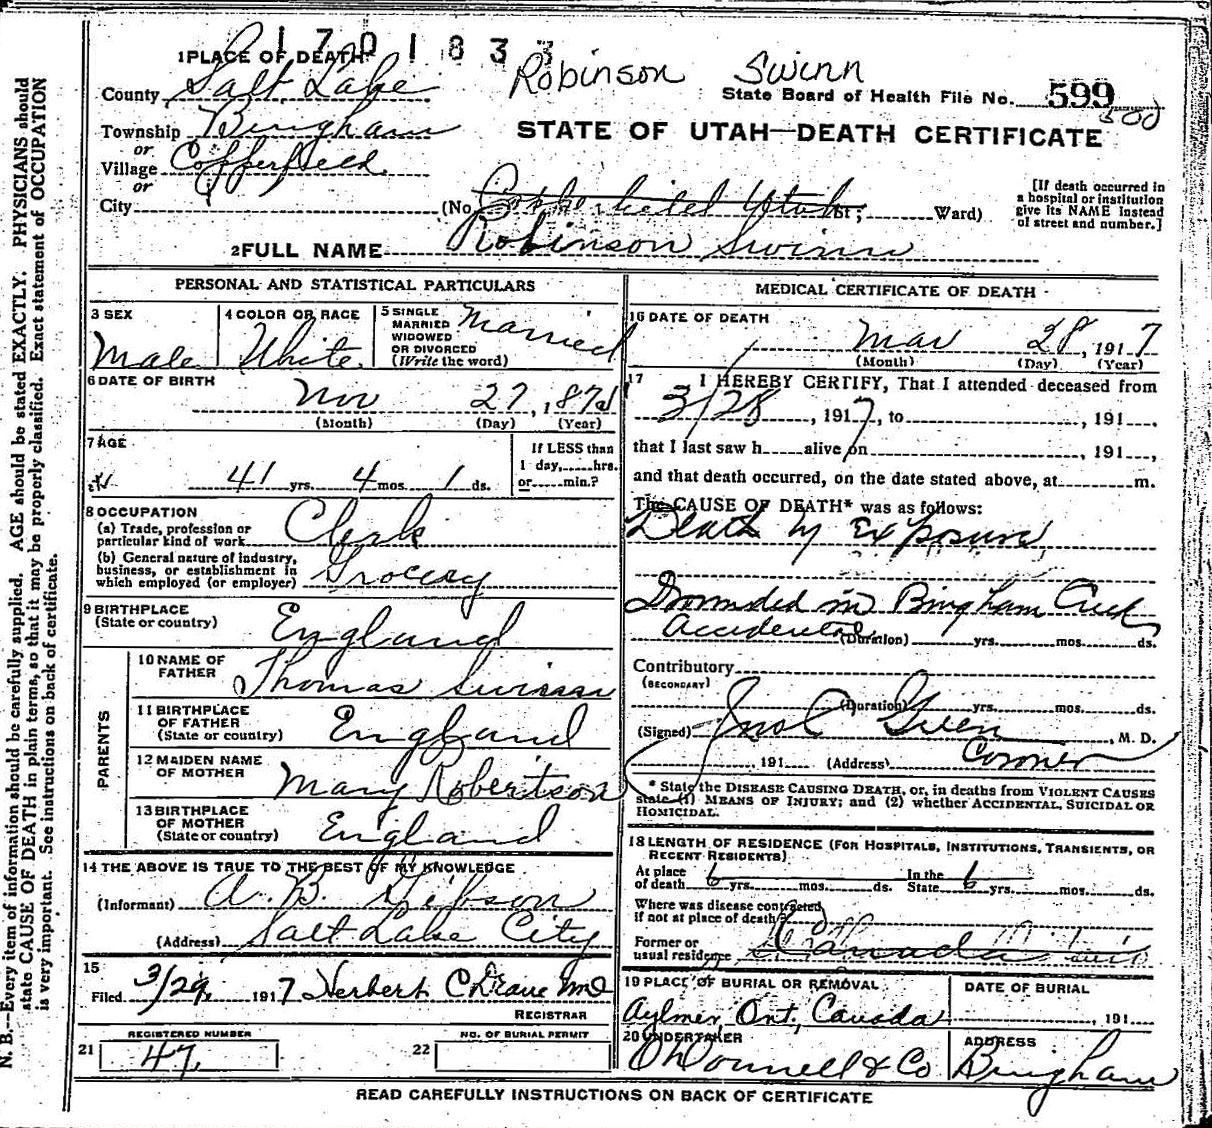 1701833
Robinson Swinn
1 PLACE OF DEATH
County Salt Lake
State Board of Health File No. 599
500
Township Bingham
STATE OF UTAH—DEATH CERTIFICATE
or
Village Copperfield
or
City (No. Copperfield Utah St; Ward)
[If death occurred in
a hospital or institution
give its NAME instead
of street and number.]
2 FULL NAME Robinson Swinn
PERSONAL AND STATISTICAL PARTICULARS
3 SEX
Male
4 COLOR OR RACE
White
5 SINGLE
MARRIED
WIDOWED
OR DIVORCED
(Write the word)
Married
6 DATE OF BIRTH
Nov 27, 187
(Month) (Day) (Year)
7 AGE
41 yrs. 4 mos. 1 ds.
If LESS than
1 day, hrs.
or min.?
8 OCCUPATION
(a) Trade, profession or
particular kind of work Clerk
(b) General nature of industry,
business, or establishment in
which employed (or employer) Grocery
9 BIRTHPLACE
(State or country) England
PARENTS
10 NAME OF
FATHER Thomas Swinn
11 BIRTHPLACE
OF FATHER
(State or country) England
12 MAIDEN NAME
OF MOTHER Mary Robertson
13 BIRTHPLACE
OF MOTHER
(State or country) England
14 THE ABOVE IS TRUE TO THE BEST OF MY KNOWLEDGE
(Informant) A. B. Gibson
(Address) Salt Lake City
15
Filed 3/29, 1917 Herbert C MD
REGISTRAR
REGISTERED NUMBER
21 47
NO. OF BURIAL PERMIT
22
MEDICAL CERTIFICATE OF DEATH
16 DATE OF DEATH
Mar 28, 1917
(Month) (Day) (Year)
17 I HEREBY CERTIFY, That I attended deceased from
3/28, 1917, to , 191 .
that I last saw h alive on , 191 ,
and that death occurred, on the date stated above, at m.
The CAUSE OF DEATH* was as follows:
Death by Exposure
Drounded in Bingham Creek
Accidental (Duration) yrs. mos. ds.
Contributory
(SECONDARY)
(Duration) yrs. mos. ds.
(Signed) Jno C Green, M. D.
, 191 (Address) Coroner
* State the DISEASE CAUSING DEATH, or, in deaths from VIOLENT CAUSES
state (1) MEANS OF INJURY; and (2) whether ACCIDENTAL, SUICIDAL OR
HOMICIDAL.
18 LENGTH OF RESIDENCE (FOR HOSPITALS, INSTITUTIONS, TRANSIENTS, OR
RECENT RESIDENTS)
At place In the
of death 6 yrs. mos. ds. State 6 yrs. mos. ds.
Where was disease contracted
if not at place of death?
Former or
usual residence Canada
19 PLACE OF BURIAL OR REMOVAL
Aylmer, Ont, Canada
DATE OF BURIAL
, 191
20 UNDERTAKER
O'Donnell & Co
ADDRESS
Bingham
READ CAREFULLY INSTRUCTIONS ON BACK OF CERTIFICATE
N. B.—Every item of information should be carefully supplied. AGE should be stated EXACTLY. PHYSICIANS should
state CAUSE OF DEATH in plain terms, so that it may be properly classified. Exact statement of OCCUPATION
is very important. See instructions on back of certificate.